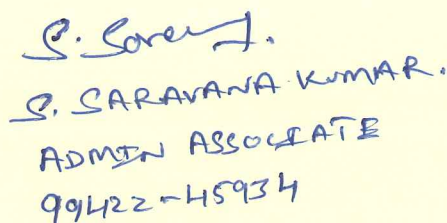 S. SARAVANA KUMAR.
ADMIN ASSOCIATE
99422-45934